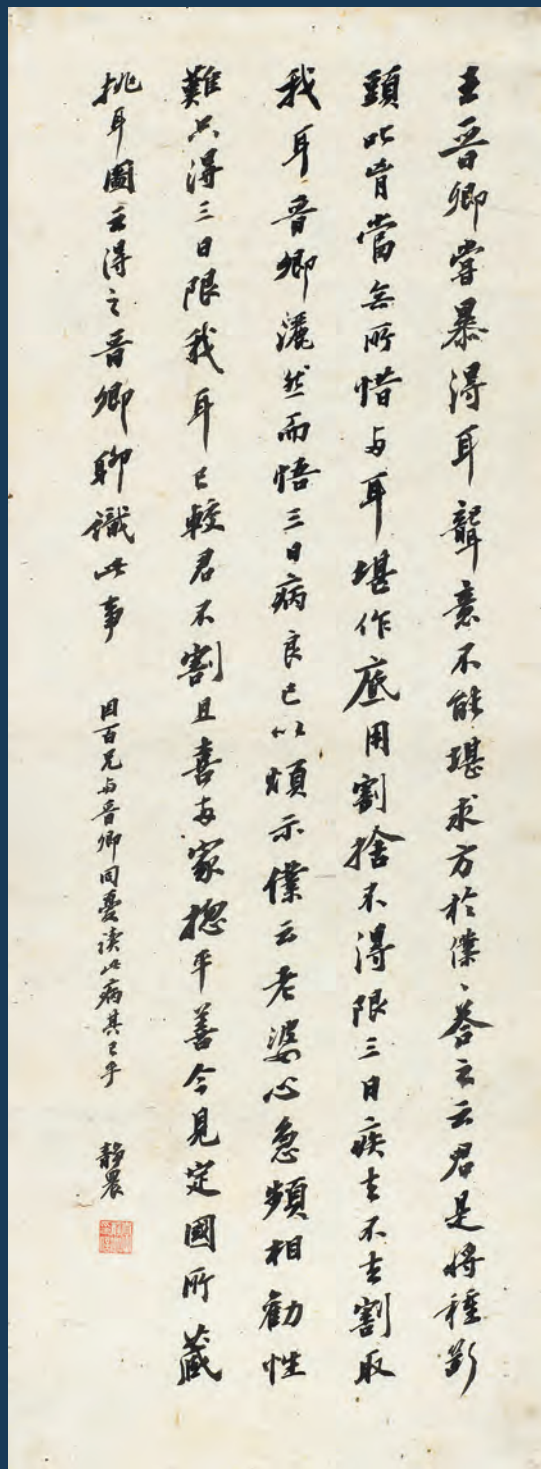 王晉卿嘗暴得耳聾意不能堪求方於僕、答之云君是將種斷
頭吡胷當無所惜与耳堪作底用割捨不得限三日疾去不去割取
我耳晉卿灑然而悟三日病良已以頌示僕云老婆心急頻相勸性
難只得三日限我耳已較君不割且喜兩家揔平善今見定國所藏
挑耳圖云得之晉卿聊識此事
因百兄与晉卿同憂读此病其已乎
靜農